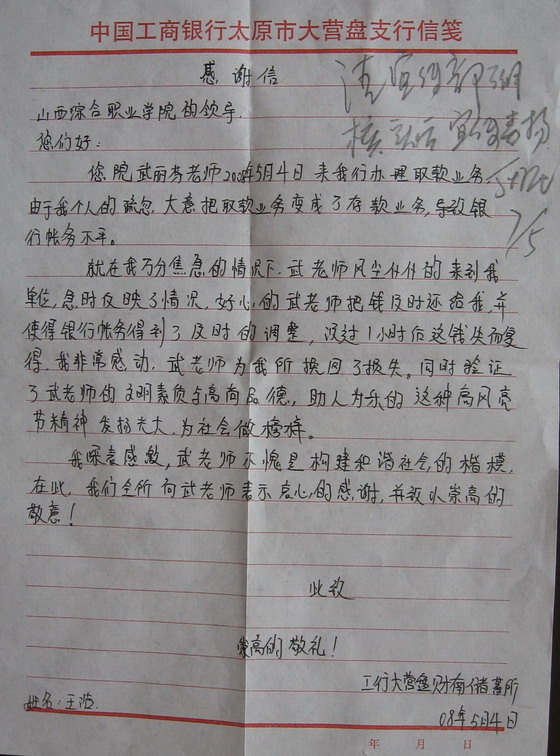 中国工商银行太原市大营盘支行信笺
感谢信
山西综合职业学院的领导.
您们好:
您院武丽芳老师2008年5月4日来我们办理取款业务,
由于我个人的疏忽.大意把取款业务变成了存款业务,导致银
行帐务不平。
就在我万分焦急的情况下.武老师风尘仆仆的来到我
单位,急时反映了情况,好心的武老师把钱及时还给我,并
使得银行帐务得到了及时的调整,没过1小时后这钱失而复
得.我非常感动.武老师为我所换回了损失。同时验证
了武老师的文明素质与高尚品德,助人为乐的这种高风亮
节精神发扬光大.为社会做榜样。
我深表感激,武老师不愧是构建和谐社会的楷模,
在此,我们全所向武老师表示衷心的感谢,并致以崇高的
敬意!
此致
崇高的敬礼!
工行大营盘财南储蓄所
姓名:王浩
08年5月4日
年 月 日
7/5